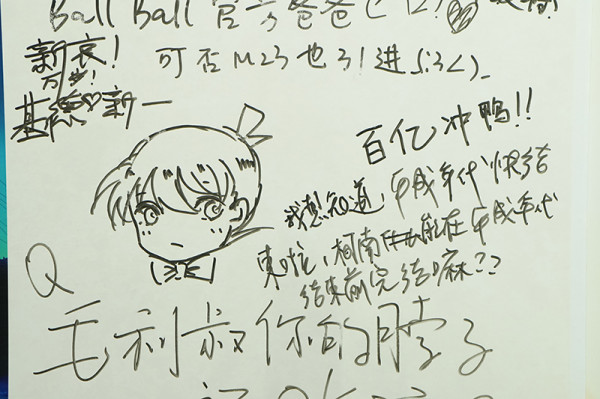 Ball Ball 官方爸爸
新哀！
万岁！
可否M23也引进(:3<)_
基德♡新一
百亿冲鸭!!
我想知道，平成年代快结
束啦，柯南能在平成年代
结束前完结嘛??
Q
毛利叔你的脖子